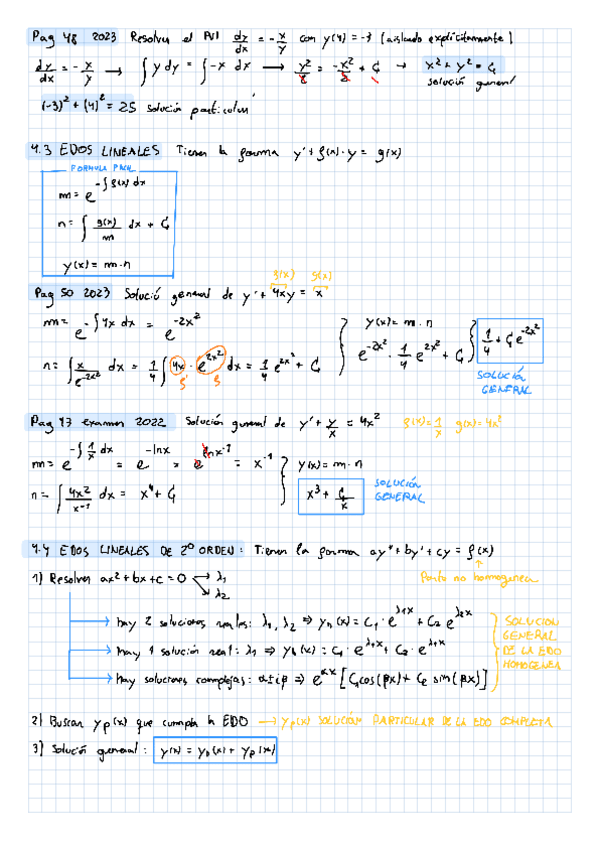 Pag 48 2023 Resolver el PVI dy/dx = -x/y con y(4) = -3 (aislado explícitamente)
dy/dx = -x/y → ∫ y dy = ∫ -x dx → y²/2 = -x²/2 + C₁ → x² + y² = C₁
solució general
(-3)² + (4)² = 25 solución particular
4.3 EDOS LINEALES Tienen la forma y' + f(x)·y = g(x)
FORMULA FACIL
m = e^(-∫f(x) dx)
n = ∫ g(x)/m dx + C₁
y(x) = m·n
Pag 50 2023 Solució general de y' + 4xy = x f(x) g(x)
m = e^(-∫4x dx) = e^(-2x²)
n = ∫ x/e^(-2x²) dx = 1/4 ∫ 4x · e^(2x²) dx = 1/4 e^(2x²) + C₁
y(x) = m·n
e^(-2x²) · 1/4 e^(2x²) + C₁
1/4 + C₁e^(-2x²)
SOLUCIÓN GENERAL
Pag 47 examen 2022 Solución general de y' + y/x = 4x² f(x) = 1/x g(x) = 4x²
m = e^(-∫1/x dx) = e^(-lnx) = e^(lnx⁻¹) = x⁻¹
n = ∫ 4x²/x⁻¹ dx = x⁴ + C₁
y(x) = m·n
x³ + C₁/x
SOLUCIÓN GENERAL
4.4 EDOS LINEALES DE 2º ORDEN: Tienen la forma ay'' + by' + cy = f(x)
Parte no homogenea
1) Resolver ax² + bx + c = 0 → λ₁
→ λ₂
→ hay 2 soluciones reales: λ₁, λ₂ ⇒ yₕ(x) = C₁·e^(λ₁x) + C₂ e^(λ₂x)
→ hay 1 solución real: λ₁ ⇒ yₕ(x) = C₁·e^(λ₁x) + C₂·e^(λ₁x)
→ hay soluciones complejas: α±iβ ⇒ e^(αx) [C₁cos(βx) + C₂ sin(βx)]
SOLUCION GENERAL DE LA EDO HOMOGENEA
2) Buscar yp(x) que cumpla la EDO → yp(x) SOLUCIÓN PARTICULAR DE LA EDO COMPLETA
3) Solución general: y(x) = yₕ(x) + yp(x)